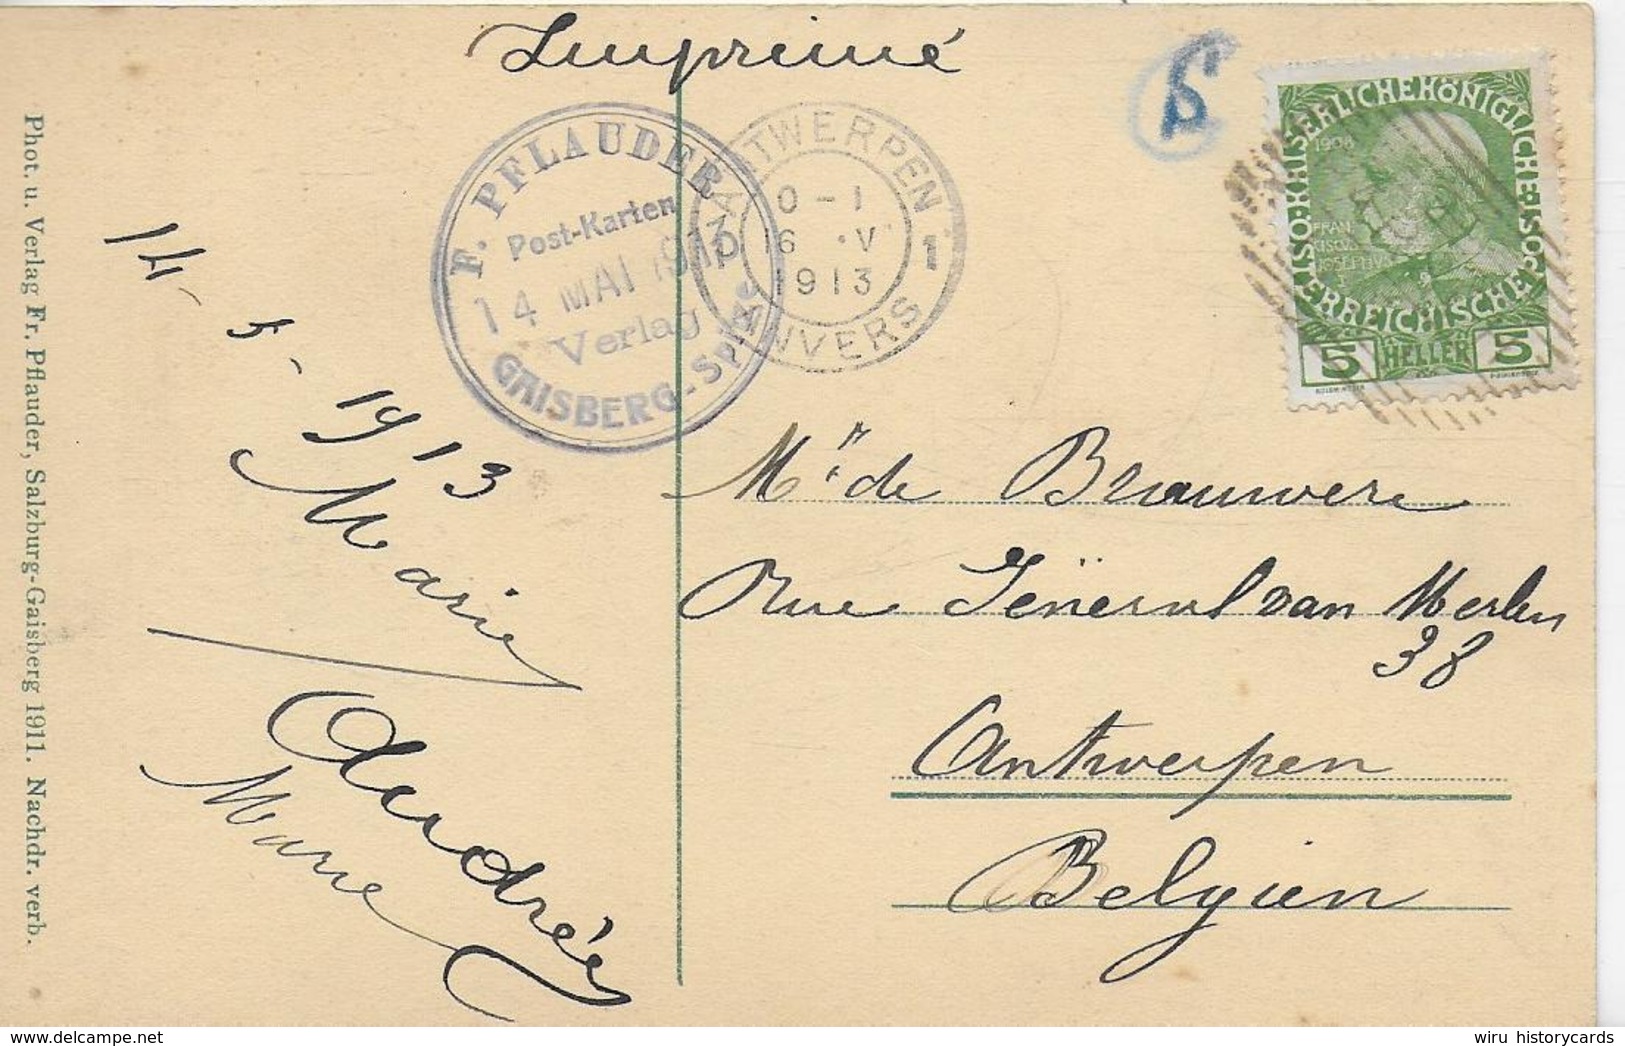 Imprimé
5
F. PFLAUDER
Post-Karten
14 MAI 1913
Verlag
GAISBERG-Spitze
ANTWERPEN
0 - 1
6 . V
1913
1 1
ANVERS
KAISERLICHE KÖNIGLICHE
ÖSTERREICHISCHE
1908
5 HELLER 5
Phot. u. Verlag Fr. Pflauder, Salzburg-Gaisberg 1911. Nachdr. verb.
14 - 5 - 1913
Marie
Andrée
Mr de Brauwere
Rue Général van Merlen
38
Antwerpen
Belgien
wiru historycards